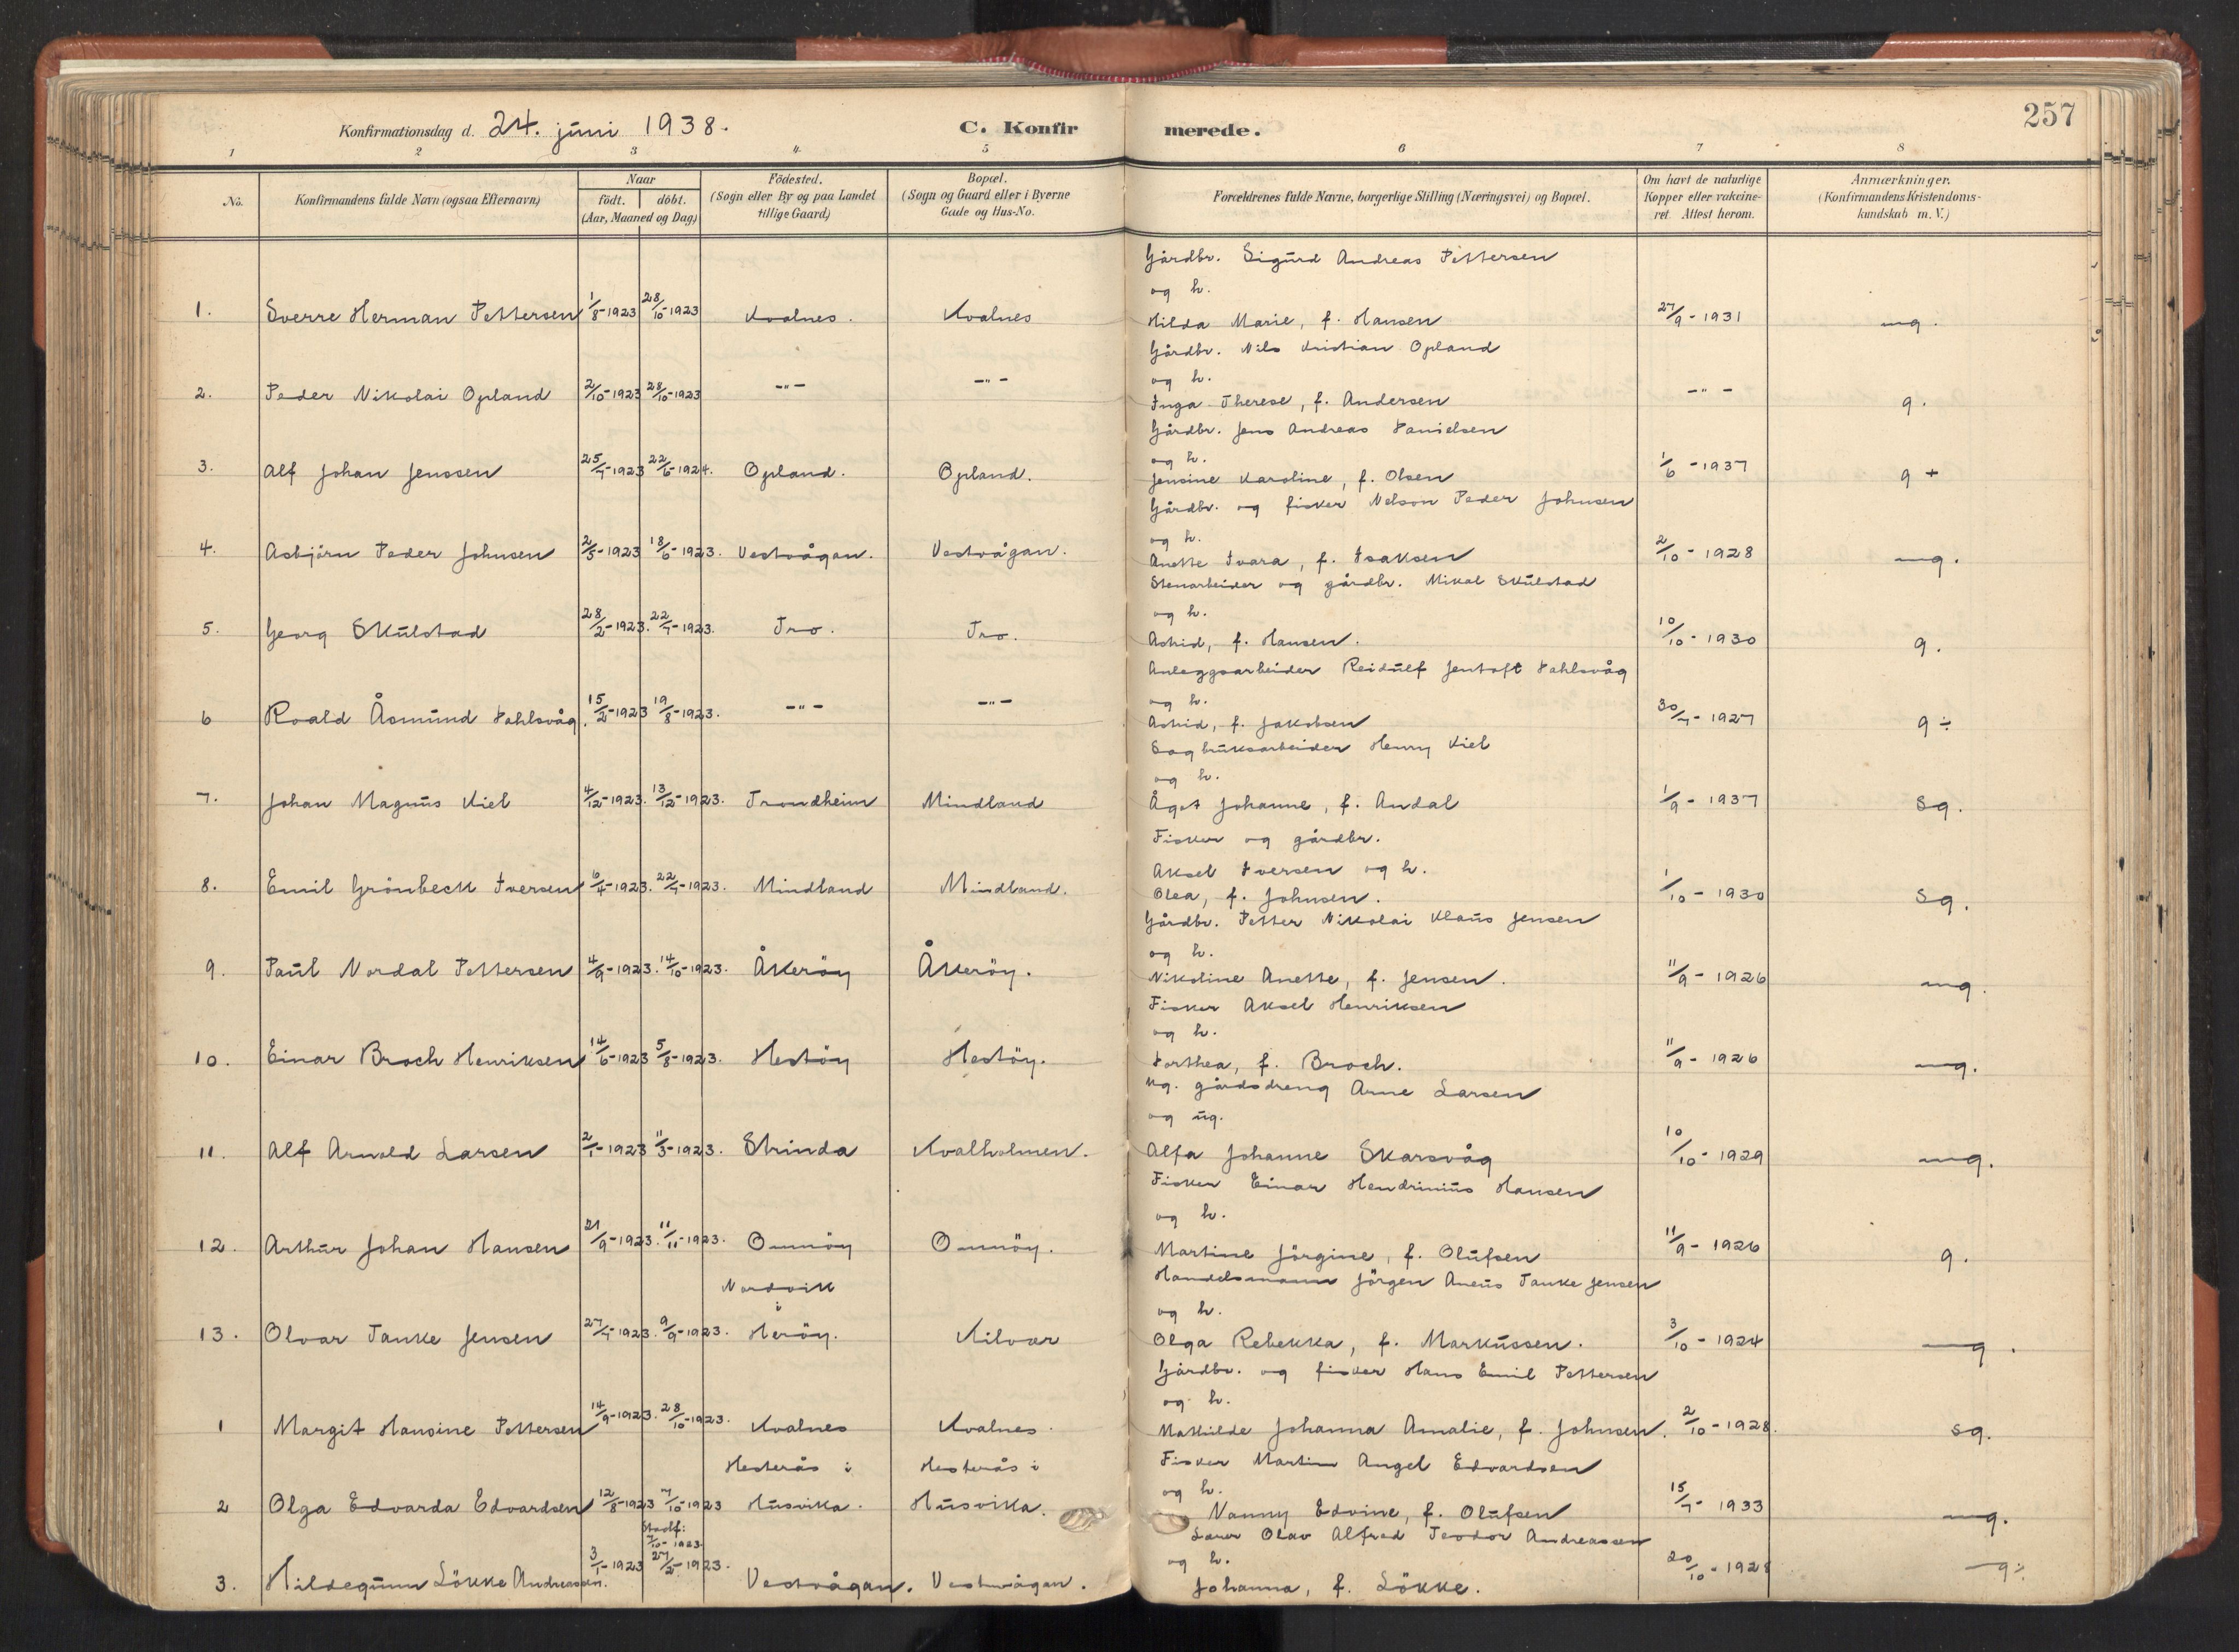 257
Konfirmationsdag d. 24. juni 1938.
C. Konfirmerede.
1 2 3 4. 5 6 7 8
No.
Konfirmandens fulde Navn (ogsaa Efternavn)
Naar
födt. döbt.
(Aar, Maaned og Dag)
Födested.
(Sogn eller By og paa Landet
tillige Gaard)
Bopæl.
(Sogn og Gaard eller i Byerne
Gade og Hus-No.
Forældrenes fulde Navne, borgerlige Stilling (Næringsvei) og Bopæl.
Om havt de naturlige
Kopper eller vakcine-
ret. Attest herom.
Anmærkninger.
(Konfirmandens Kristendoms-
kundskab m. V.)
Gårdbr. Sigurd Andreas Pettersen
og h.
1. Sverre Herman Pettersen 1/8-1923 28/10-1923 Kvalnes. Kvalnes Hilda Marie, f. Hansen 27/9-1931 mg.
Gårdbr. Nils Kristian Opland
og h.
2. Peder Nikolai Opland 2/10-1923 28/10-1923 -"- -"- Inga Therese, f. Andersen -"- g.
Gårdbr. Jens Andreas Danielsen
og h.
3. Alf Johan Jenssen 25/7-1923 22/6-1924. Opland. Opland. Jensine Karoline, f. Olsen 1/6-1937 g +
Gårdbr. og fisker Nelson Peder Johnsen
og h.
4. Asbjörn Peder Johnsen 2/5-1923 18/6-1923. Vestvågan. Vestvågan. Anette Ivara, f. Isaksen 2/10-1928 mg.
Stenarbeider og gårdbr. Mikal Skulstad
og h.
5. Georg Skulstad 28/2-1923. 22/7-1923. Tro. Tro. Astrid, f. Hansen. 10/10-1930 g.
Anleggsarbeider Reidulf Jentoft Dahlsvåg
og h.
6 Roald Åsmund Dahlsvåg. 15/2-1923 19/8-1923. -"- -"- Astrid, f. Jakobsen 30/7-1927 g ÷
Sagbruksarbeider Henry Kiel
og h.
7. Johan Magnus Kiel 4/12-1923. 13/12-1923. Trondheim Mindland Ågot Johanne, f. Andal 1/9-1937 Sg.
Fisker og gårdbr.
Aksel Iversen og h.
8. Emil Grönbeck Iversen 6/4-1923. 22/7-1923. Mindland Mindland. Olea, f. Johnsen. 1/10-1930 Sg.
Gårdbr. Petter Nikolai Klaus Jensen
og h.
9. Paul Nordal Pettersen 4/9-1923. 14/10-1923. Åkeröy Åkeröy. Nikoline Anette, f. Jensen. 11/9-1926 mg.
Fisker Aksel Henriksen
og h.
10. Einar Broch Henriksen 14/6-1923 5/8-1923. Hestöy Hestöy. Dorthea, f. Broch. 11/9-1926 mg.
Ug. gårdsdreng Arne Larsen
og ug.
11. Alf Arnold Larsen 2/1-1923 11/3-1923. Strinda Kvalholmen. Alfa Johanne Skarsvåg 10/10-1929 mg.
Fisker Einar Hendrinius Hansen
og h.
12. Arthur Johan Hansen 21/9-1923. 11/11-1923. Ommöy Ommöy. Martine Jörgine, f. Olufsen 11/9-1926 g.
Nordvik
i
Handelsmann Jörgen Aneus Tanke Jensen
og h.
13. Olvar Tanke Jensen 27/7-1923. 9/9-1923. Heröy. Kilvær Olga Rebekka, f. Markussen. 3/10-1924 mg.
Gårdbr. og fisker Hans Emil Pettersen
og h.
1 Margit Hansine Pettersen 14/9-1923. 28/10-1923. Kvalnes Kvalnes. Mathilde Johanna Amalie, f. Johnsen. 2/10-1928. sg.
Hesterås i Hesterås i Fisker Martin Angel Edvardsen
og h.
2 Olga Edvarda Edvardsen 12/8-1923 7/10-1923 Husvika. Husvika. Nanny Edvine, f. Olufsen 15/7-1933 mg.
Stadf:
7/10-1923.
Lærer Olav Alfred Teodor Andreassen
og h.
3. Hildegunn Lökke Andreassen. 3/1-1923 27/2-1923. Vestvågan. Vestvågan. Johanna, f. Lökke. 20/10-1928 g÷